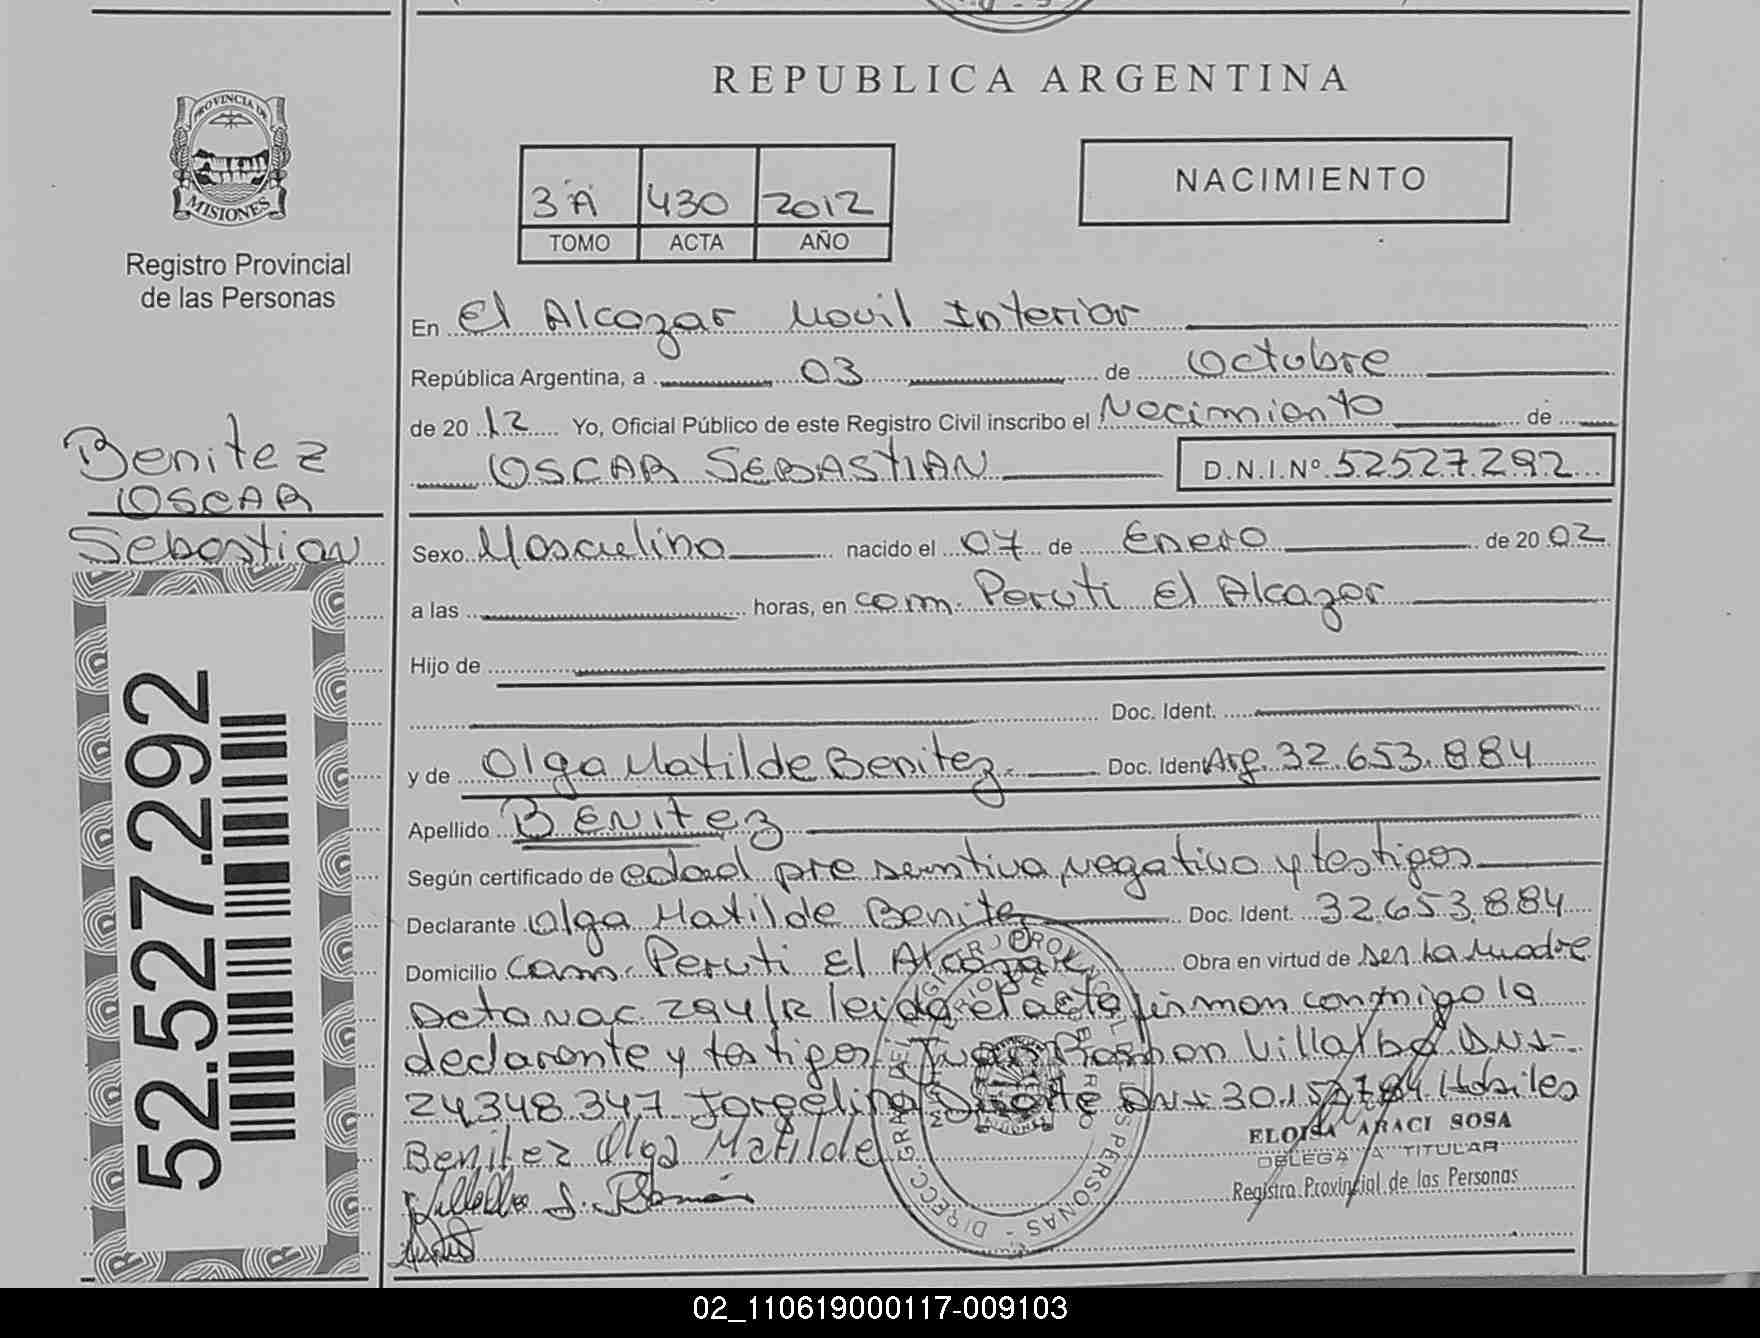 REPUBLICA ARGENTINA
PROVINCIA DE
MISIONES
Registro Provincial
de las Personas
3 A 430 2012
TOMO ACTA AÑO
NACIMIENTO
En El Alcazar Movil Interior
República Argentina, a 03 de Octubre
de 20 12 Yo, Oficial Público de este Registro Civil inscribo el Nacimiento de
OSCAR SEBASTIAN D.N.I.Nº 52527292
Benitez
OSCAR
Sebastian
Sexo Masculino nacido el 07 de Enero de 20 02
a las horas, en com. Peruti El Alcazar
Hijo de
Doc. Ident.
y de Olga Matilde Benitez Doc. Ident Arg. 32.653.884
Apellido BENITEZ
Según certificado de edad presuntiva, negativo y testigos
Declarante Olga Matilde Benitez Doc. Ident. 32.653.884
Domicilio Com. Peruti El Alcazar Obra en virtud de ser la madre
Acta nac 294/12 leida el acta firman conmigo la
declarante y testigos Juan Ramon Villalba DNI
24.348.347 Jorgelina Duarte DNI Habiles
Benitez Olga Matilde
ELOISA ARACI SOSA
DELEGADA TITULAR
Registro Provincial de las Personas
52.527.292
02_110619000117-009103